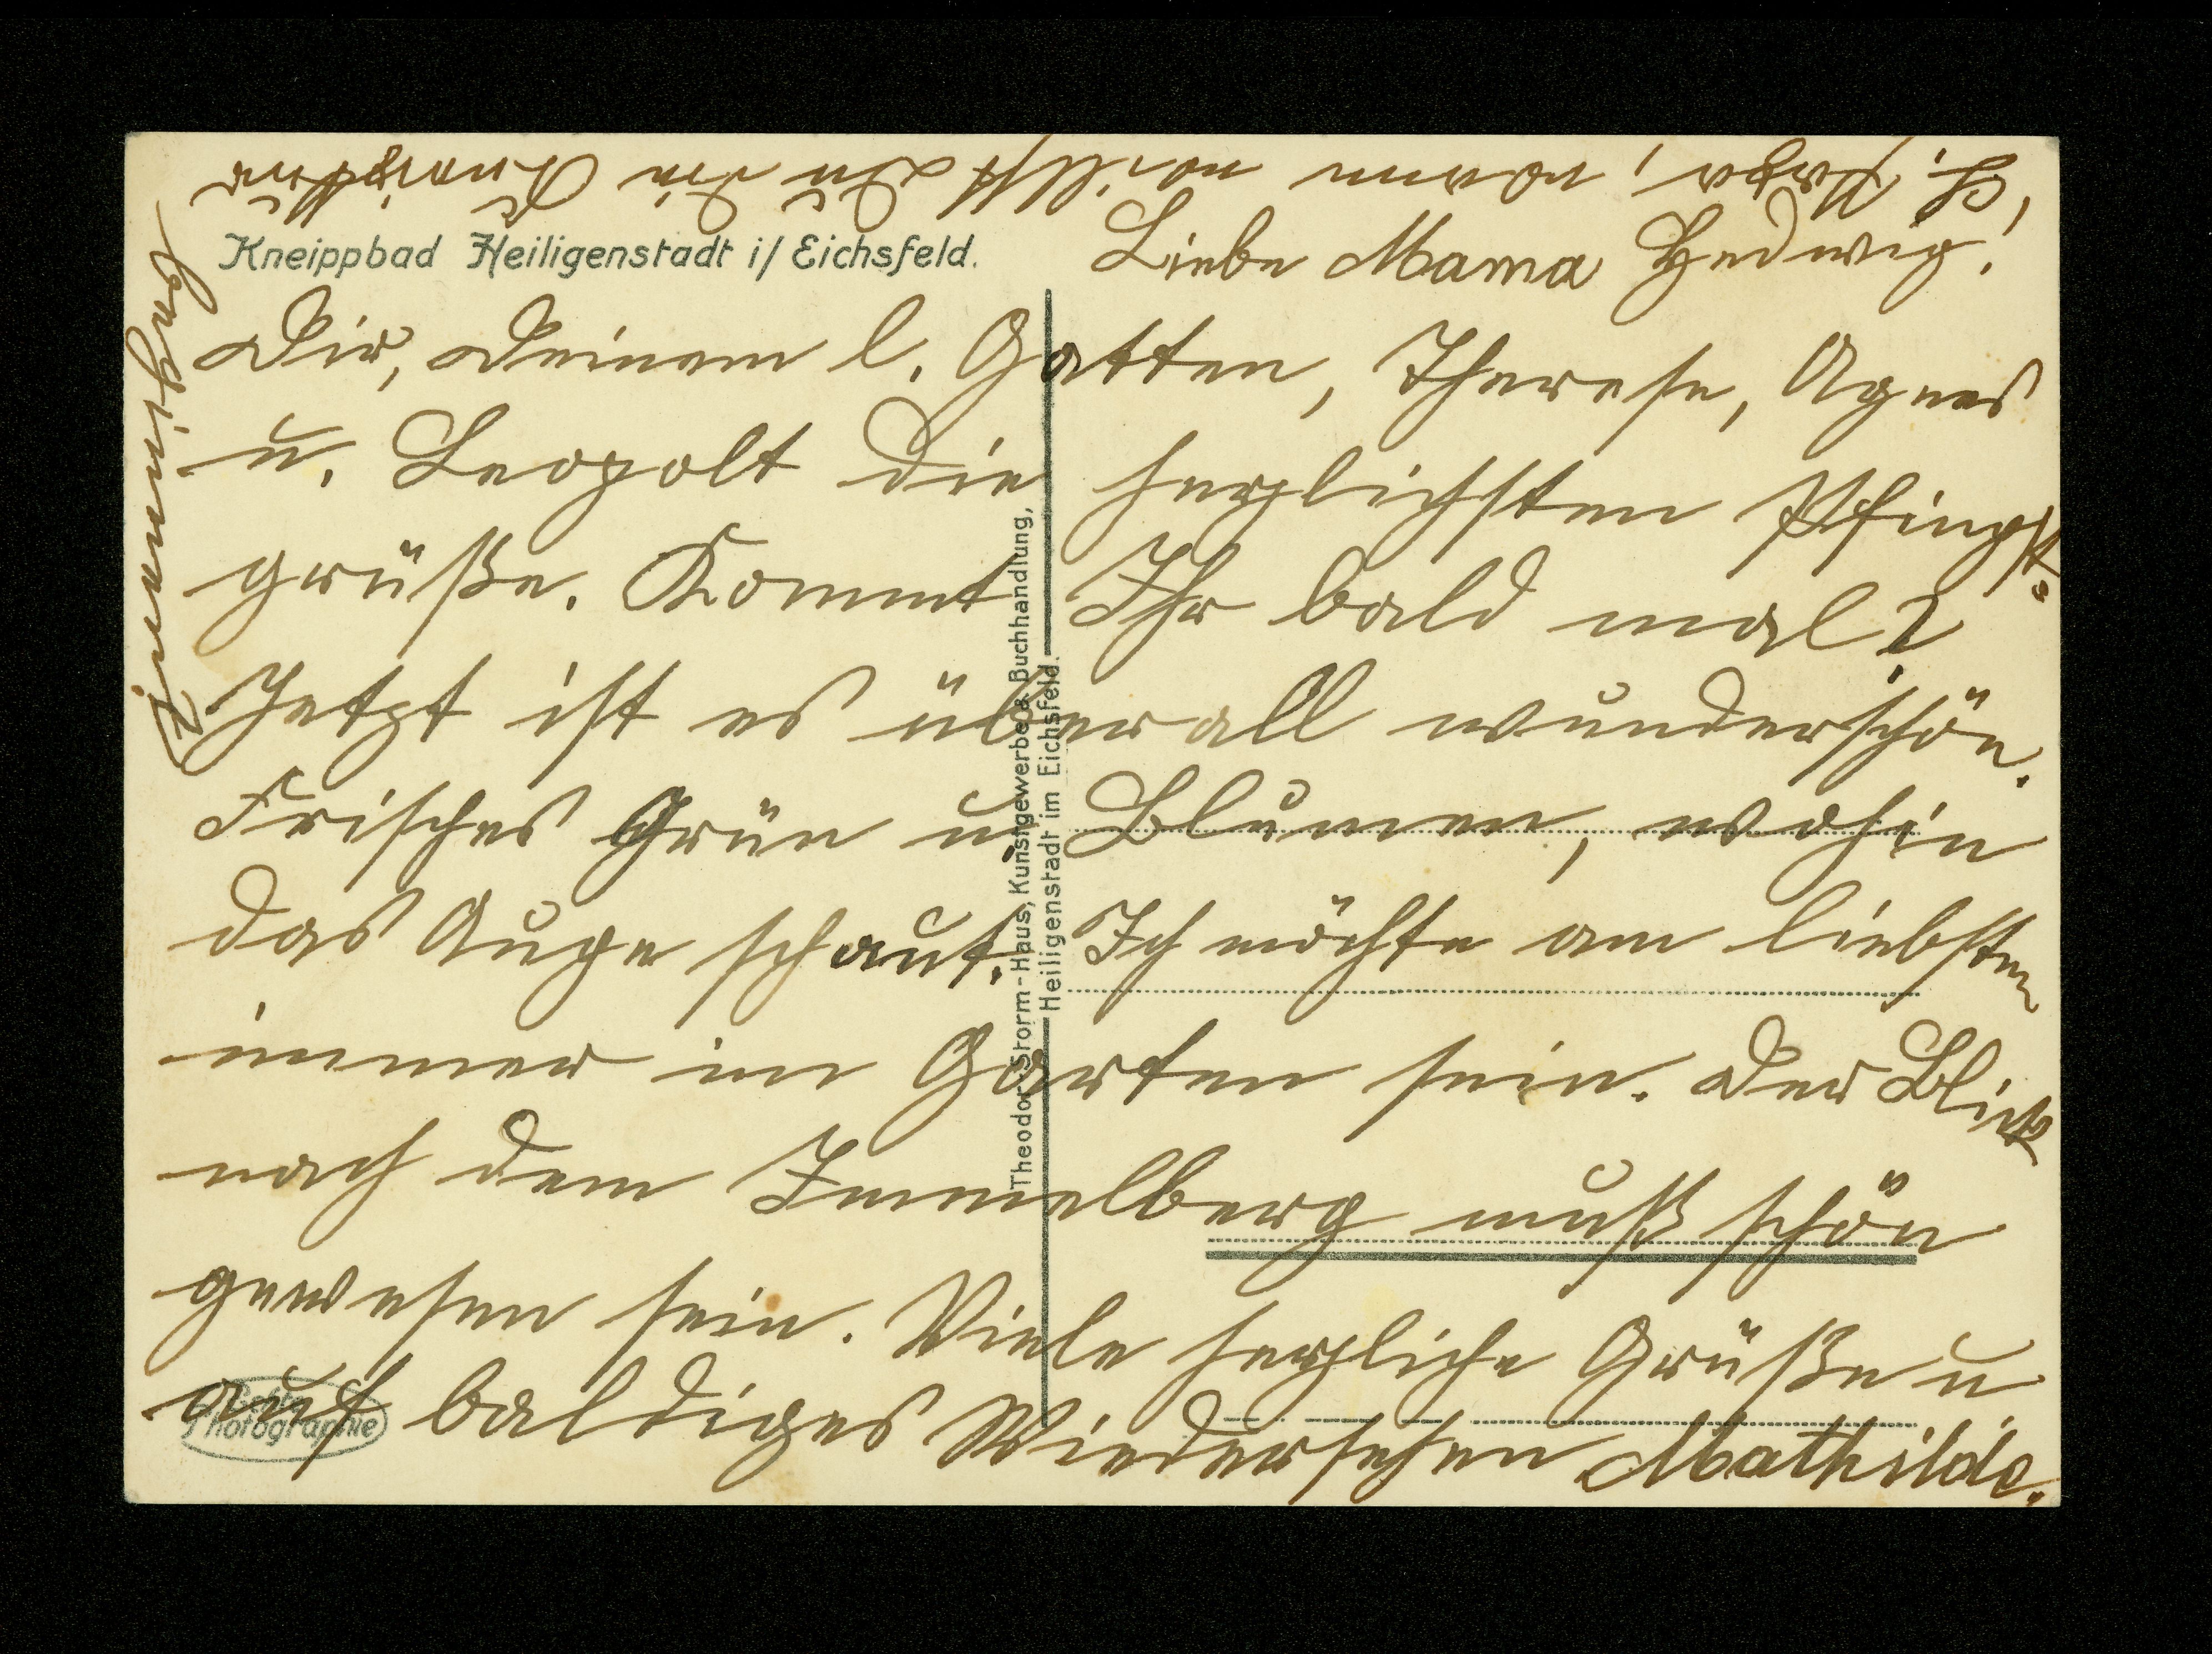 Kneippbad Heiligenstadt i/ Eichsfeld.
Liebe Mama Hedwig!
Dir, Deinem l. Gatten, Therese, Agnes
u. Leopolt die herzlichsten Pfingst-
grüße. Kommt Ihr bald mal?
Jetzt ist es überall wunderschön.
Frisches Grün u. Blumen, wohin
das Auge schaut. Ich möchte am liebsten
immer im Garten sein. Der Blick
nach dem Immelberg muß schön
gewesen sein. Viele herzliche Grüße u.
auf baldiges Wiedersehen Mathilde.
wann willst Du in die
beginnen?
Theodor-Storm-Haus, Kunstgewerbe & Buchhandlung,
Heiligenstadt im Eichsfeld.
Echte
Photographie